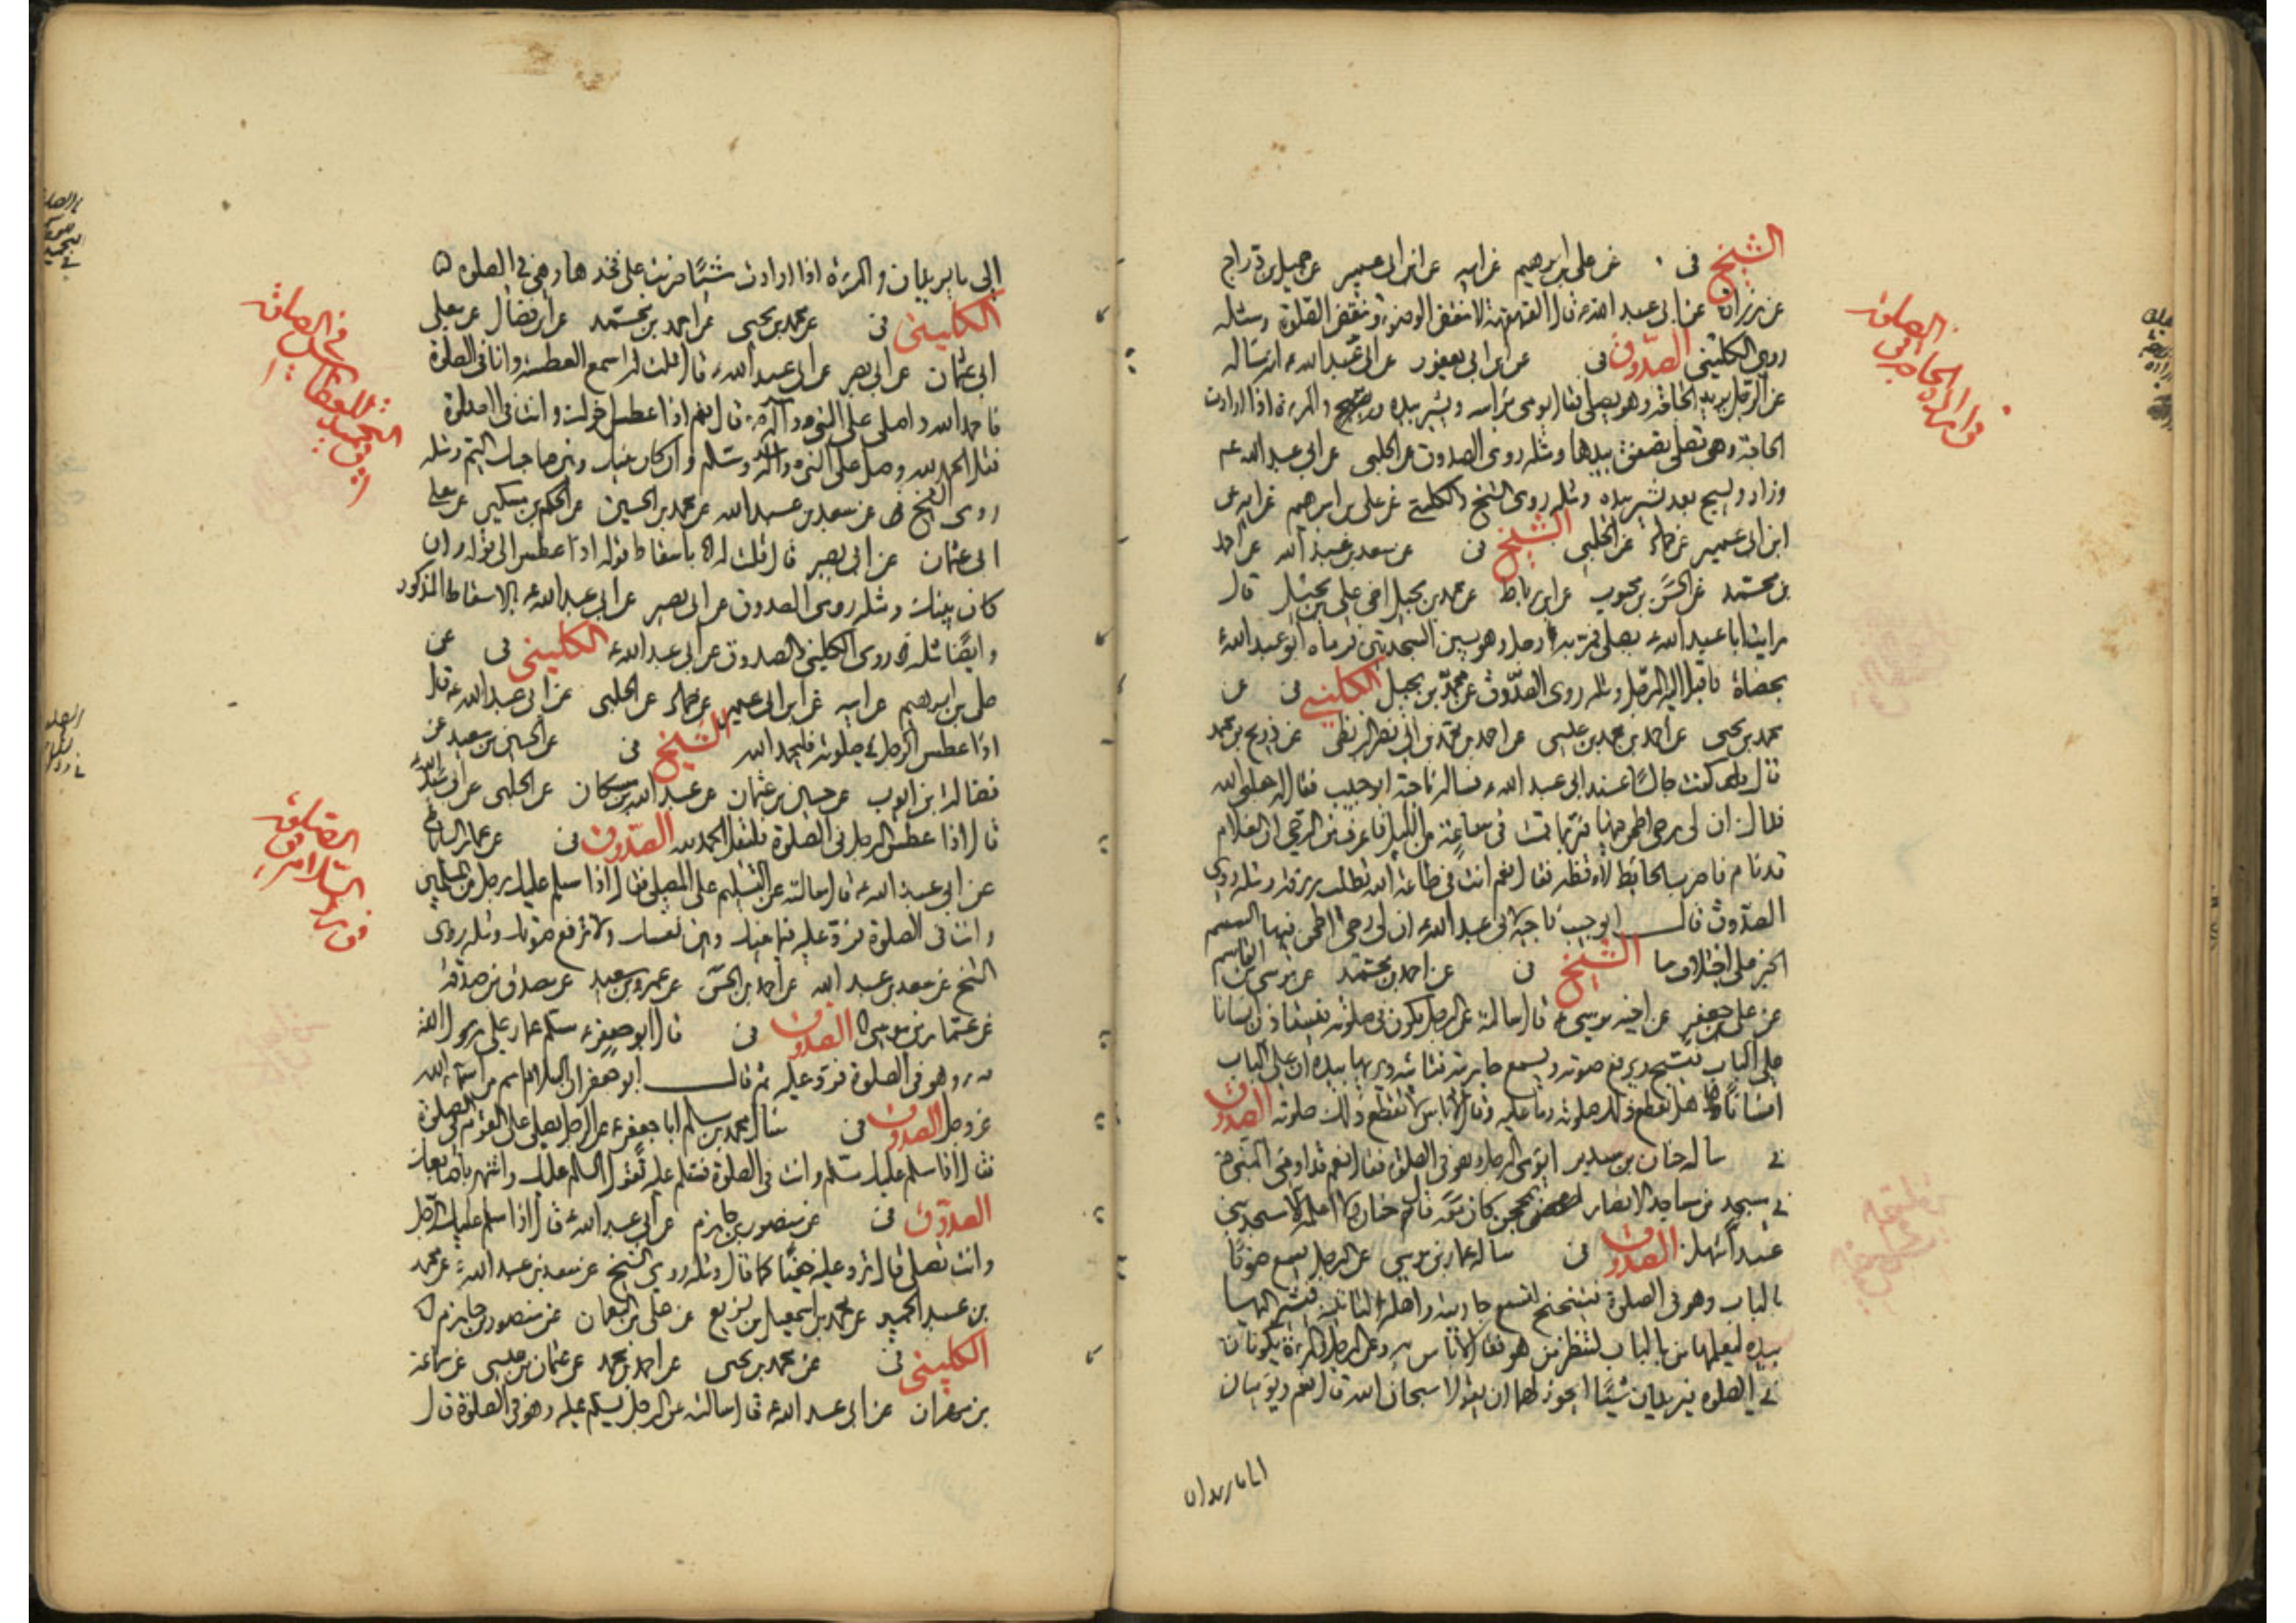 الشيخ فى عن على بن ابرهيم عن ابيه عن ابن ابى عمير عن جميل بن دراج
عن زرارة عن ابى عبد الله ع قال القهقهة لا تنقض الوضوء وتنقض الصلوة ومثله
روى الكلينى الصدوق فى عن ابن ابى يعفور عن ابى عبد الله ع انه سئاله
عن الرجل يريد الحاجة وهو يصلى فقال يومى براسه ويشير بيده ويسبح والمرءة اذا ارادت
الحاجة وهى تصلى تصفق بيدها ومثله روى الصدوق عن الحلبى عن ابى عبد الله عم
وزاد ويسبح بعد يشير بيده ومثله روى الشيخ والكلينى عن على بن ابرهيم عن ابيه عن
ابن ابى عمير عن حماد عن الحلبى الشيخ فى عن سعد بن عبد الله عن احمد
بن محمد عن الحسن بن محبوب عن ابن رباط عن محمد بن بجيل اخى على بن بجيل قال
رايت ابا عبد الله ع يصلى فمر به رجل وهو بين السجدتين فرماه ابو عبد الله ع
بحصاة فاقبل اليه الرجل ومثله روى الصدوق عن محمد بن بجيل الكلينى فى عن
محمد بن يحيى عن احمد بن محمد بن عيسى عن احمد بن محمد بن ابى نصر البزنطى عن ذريح بن محمد
قال كنت جالسا عند ابى عبد الله ع فساله ناجية ابو حبيب فقال له جعلنى الله
فداك ان لى رحى اطحن فيها فربما قمت فى ساعة من الليل فاعرف من الرحى ان الغلام
قد نام فاضرب الحائط لاوقظه فقال نعم انت فى طاعة الله تطلب رزقه ومثله روى
الصدوق قال ابو حبيب ناجية لابى عبد الله ع ان لى رحى اطحن فيها السمسم
الخبر على اختلاف ما الشيخ فى عن احمد بن محمد عن موسى بن القاسم
عن على بن جعفر عن اخيه موسى ع قال سالته عن الرجل يكون فى صلوته فيستاذن انسانا
على الباب فيسبح ويرفع صوته ويسمع جاريته فتاتيه ويريها بيده ان على الباب
انسانا هل يقطع ذلك صلوته وما عليه وقال لا باس لا يقطع ذلك صلوته الصدوق
فى ساله حنان بن سدير ايومى الرجل وهو فى الصلوة فقال نعم قد اومى النبى ص
فى مسجد من مساجد الانصار بمحجن كان معه قال حنان لا اعلمه الا مسجد بنى
عبد الاشهل الصدوق فى ساله عمار بن موسى عن الرجل يسمع صوتا
بالباب وهو فى الصلوة فيتنحنح لتسمع جاريته واهله لتاتيه فيشير اليها
بيده ليعلمها من بالباب لتنظر من هو فقال لا باس به وعن الرجل والمرءة يكونان
فى الصلوة فيريدان شيئا ايجوز لهما ان يقولا سبحان الله قال نعم ويوميان
الى ما يريدان والمرءة اذا ارادت شيئا ضربت على فخذها وهى فى الصلوة
الكلينى فى عن محمد بن يحيى عن احمد بن محمد عن ابن فضال عن معلى
ابى عثمان عن ابى بصير عن ابى عبد الله ع قال قلت له اسمع العطسة وانا فى الصلوة
فاحمد الله واصلى على النبى وآله ص قال نعم اذا عطس اخوك وانت فى الصلوة
فقل الحمد لله وصل على النبى وآله وسلم وان كان بينك وبين صاحبك اليم ومثله
روى الشيخ عن سعد بن عبد الله عن محمد بن الحسين عن الحكم بن مسكين عن معلى
ابى عثمان عن ابى بصير قال قلت له باسقاط قوله اذا عطس الى قوله وان
كان بينك ومثله روى الصدوق عن ابى بصير عن ابى عبد الله ع بالاسقاط المذكور
وايضا مثله روى الكلينى والصدوق عن ابى عبد الله ع الكلينى فى عن
على بن ابرهيم عن ابيه عن ابن ابى عمير عن حماد عن الحلبى عن ابى عبد الله ع قال
اذا عطس الرجل فى صلوته فليحمد الله الشيخ فى عن الحسين بن سعيد عن
فضالة بن ايوب عن حسين بن عثمان عن عبد الله بن مسكان عن الحلبى عن ابى عبد الله ع
قال اذا عطس الرجل فى الصلوة فليقل الحمد لله الصدوق فى عن عمار الساباطى
عن ابى عبد الله ع قال سالته عن التسليم على المصلى فقال اذا سلم عليك رجل من المسلمين
وانت فى الصلوة فرد عليه فيما بينك وبين نفسك ولا ترفع صوتك ومثله روى
الشيخ عن سعد بن عبد الله عن احمد بن الحسن عن عمرو بن سعيد عن مصدق بن صدقة
عن عمار بن موسى الصدوق فى قال ابو جعفر ع سلم عمار على رسول الله
ص وهو فى الصلوة فرد عليه ثم قال ابو جعفر ان السلام اسم من اسماء الله
عز وجل الصدوق فى سال محمد بن مسلم ابا جعفر ع عن الرجل يسلم على القوم فى الصلوة
فقال اذا سلم عليك مسلم وانت فى الصلوة فسلم عليه تقول السلام عليك واشر باصابعك
الصدوق فى عن منصور بن حازم عن ابى عبد الله ع قال اذا سلم عليك الرجل
وانت تصلى قال ترد عليه خفيا كما قال ومثله روى الشيخ عن سعد بن عبد الله عن محمد
بن عبد الحميد عن محمد بن اسمعيل بن بزيع عن على بن النعمان عن منصور بن حازم
الكلينى فى عن محمد بن يحيى عن احمد بن محمد عن عثمان بن عيسى عن سماعة
بن مهران عن ابى عبد الله ع قال سالته عن الرجل يسلم عليه وهو فى الصلوة قال